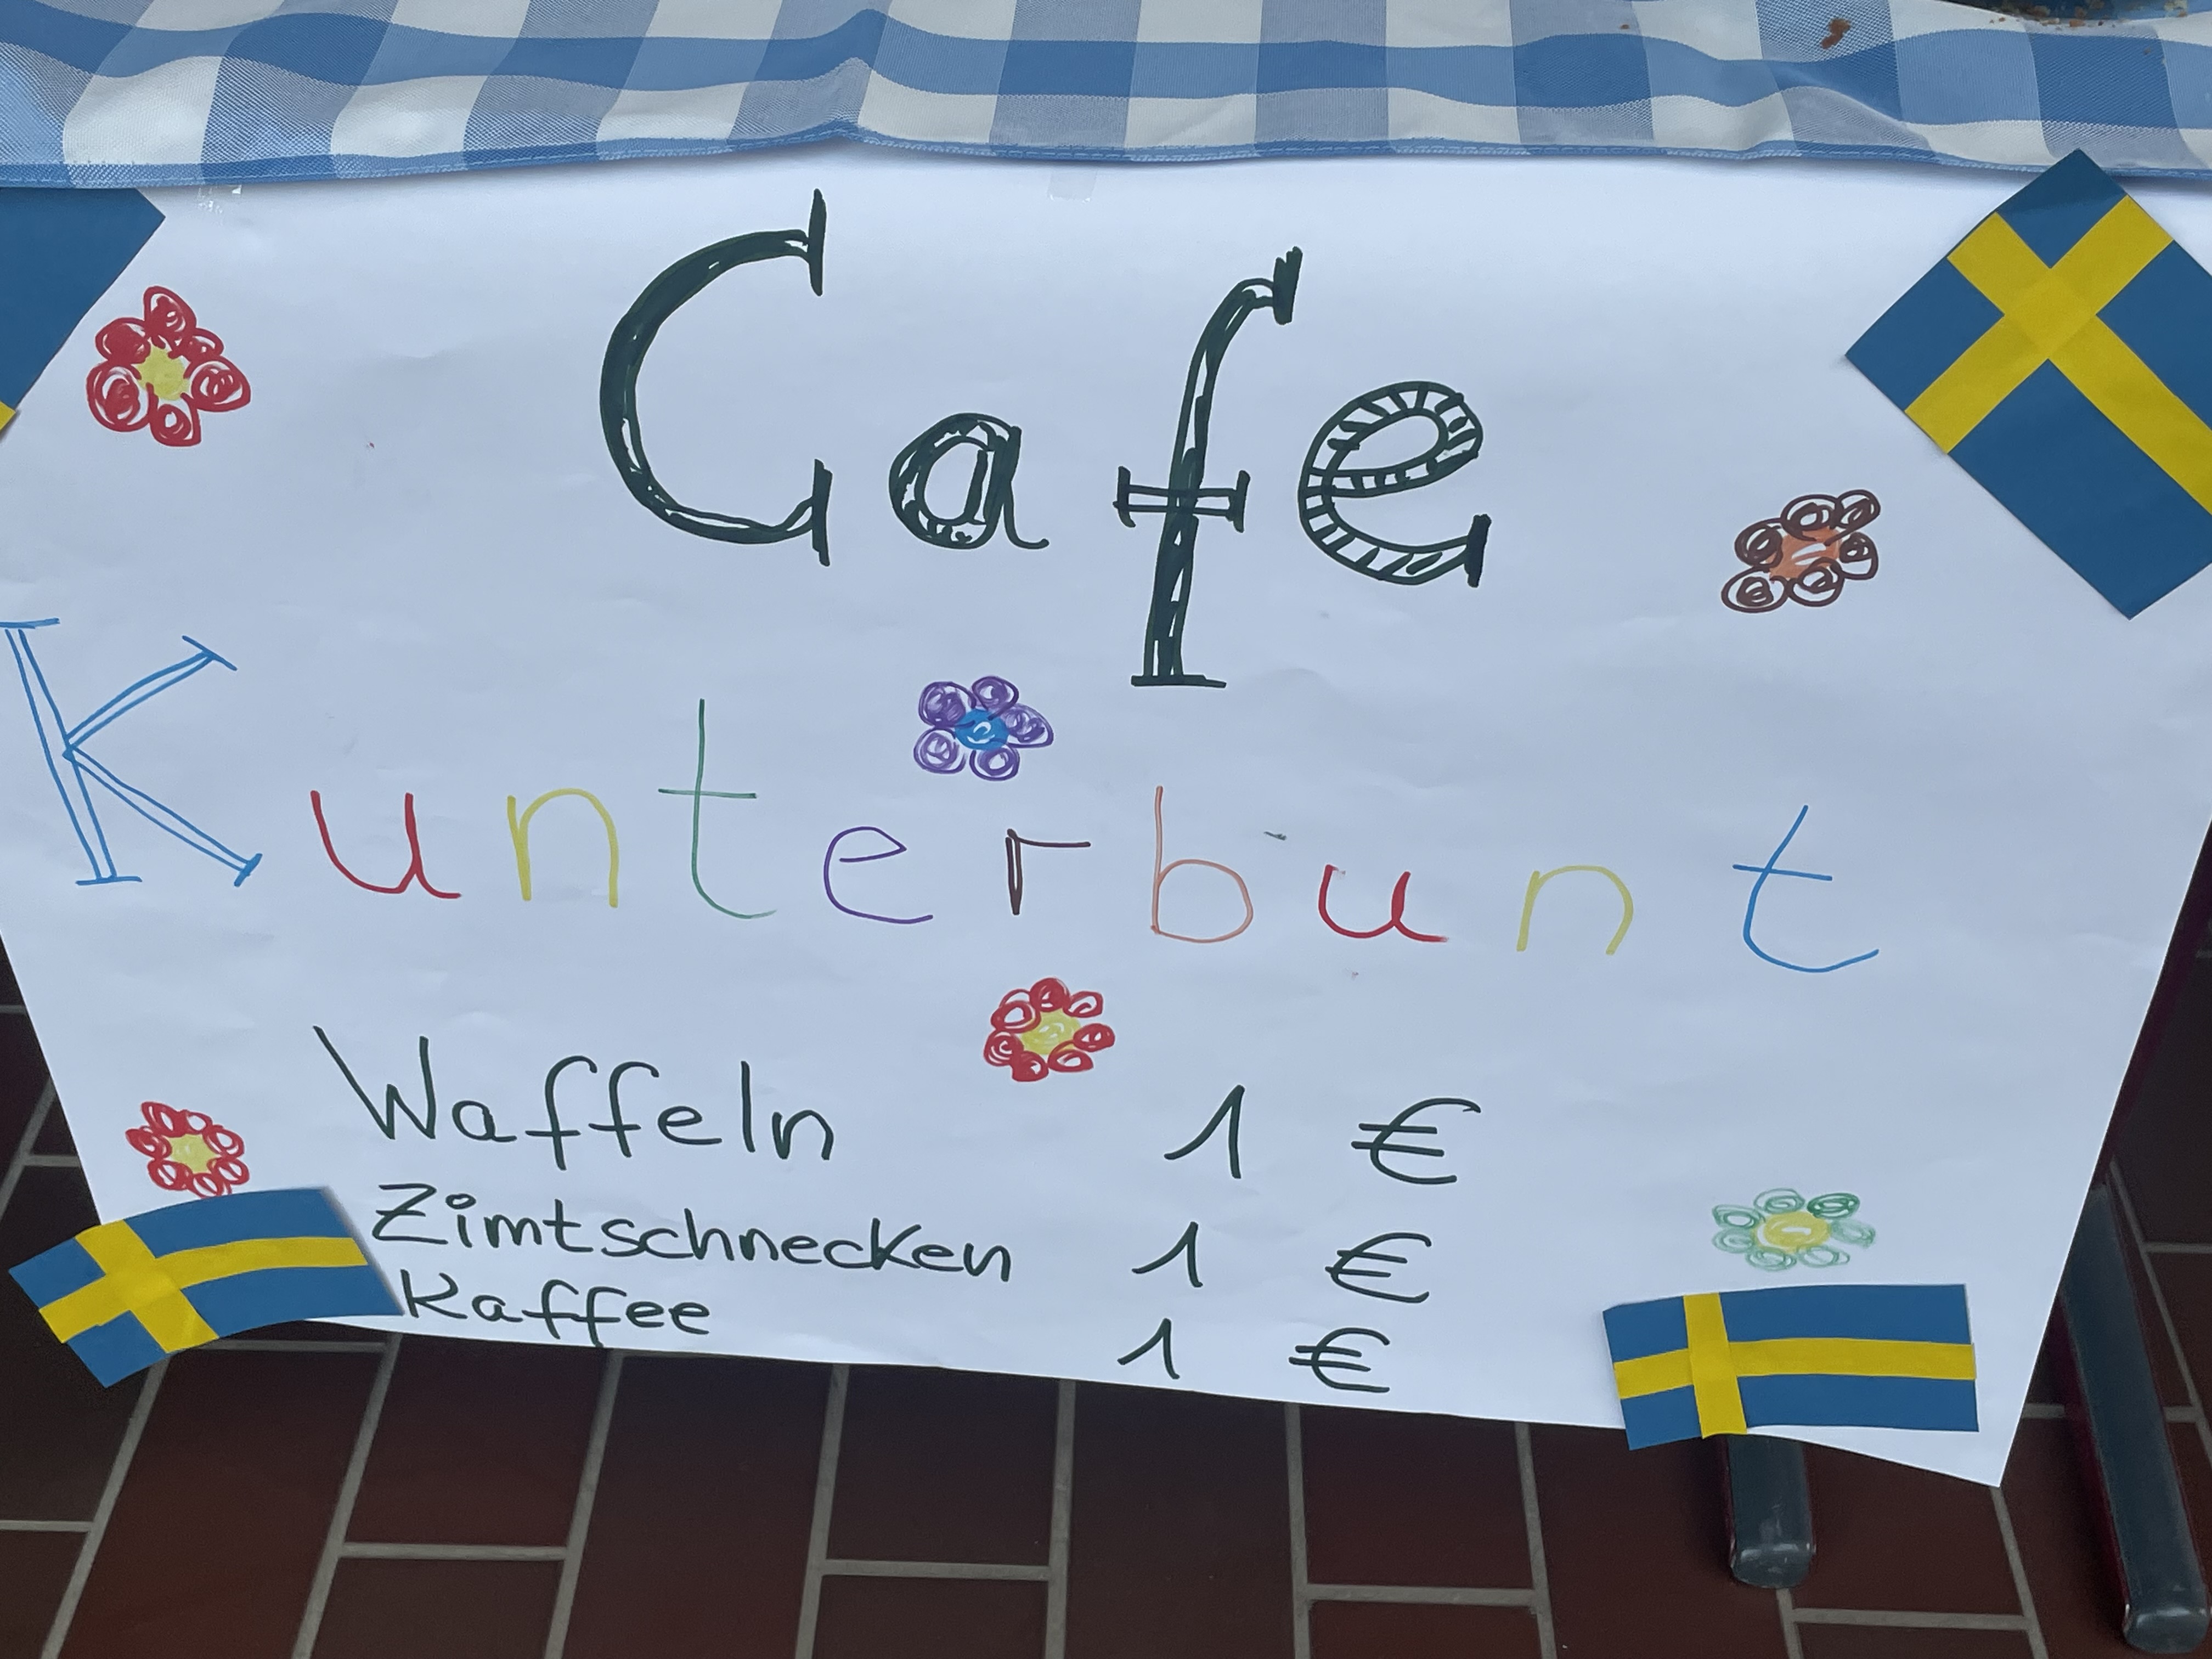 Cafe
Kunterbunt
Waffeln 1 €
Zimtschnecken 1 €
Kaffee 1 €